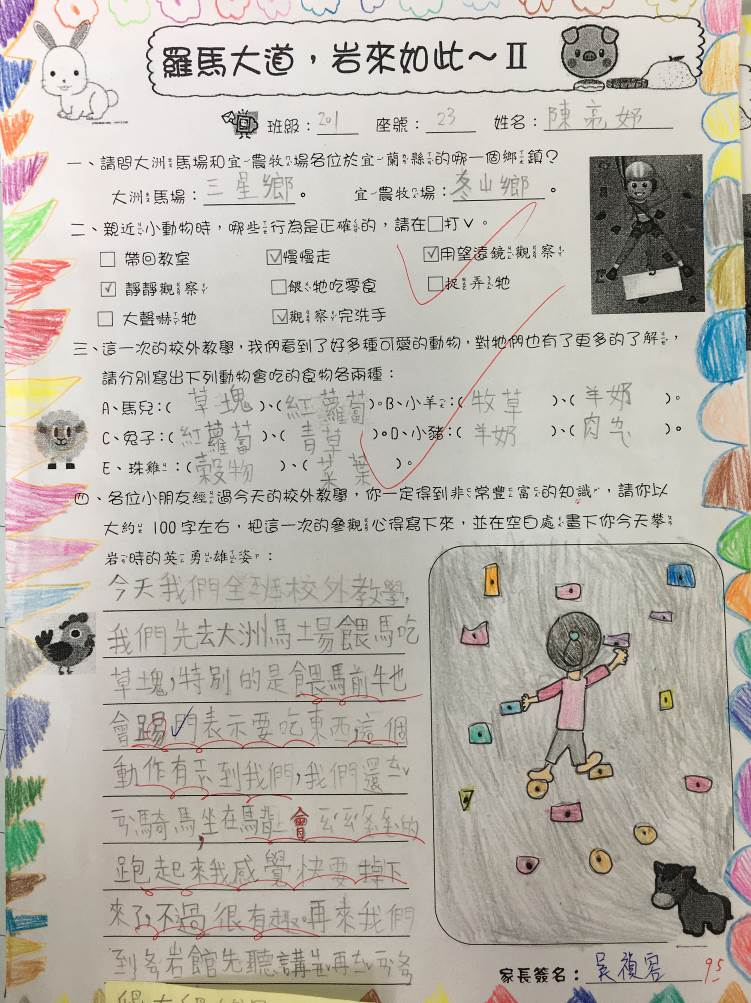 羅馬大道，岩來如此～Ⅱ
班級：201 座號：23 姓名：陳亮妤
一、請問大洲馬場和宜農牧場各位於宜蘭縣的哪一個鄉鎮？
大洲馬場：三星鄉。 宜農牧場：冬山鄉。
二、親近小動物時，哪些行為是正確的，請在□打ˇ。
□ 帶回教室 ☑慢慢走 ☑用望遠鏡觀察
☑ 靜靜觀察 □餵牠吃零食 □捉弄牠
□ 大聲嚇牠 ☑觀察完洗手
三、這一次的校外教學，我們看到了好多種可愛的動物，對牠們也有了更多的了解，
請分別寫出下列動物會吃的食物各兩種：
A、馬兒：（草塊）、（紅蘿蔔）。B、小羊：（牧草）、（羊奶）。
C、兔子：（紅蘿蔔）、（青草）。D、小豬：（羊奶）、（肉）。
E、珠雞：（穀物）、（菜葉）。
四、各位小朋友經過今天的校外教學，你一定得到非常豐富的知識，請你以
大約 100 字左右，把這一次的參觀心得寫下來，並在空白處畫下你今天攀
岩時的英勇雄姿：
今天我們全班校外教學，
我們先去大洲馬場餵馬吃
草塊，特別的是餵馬前牠
會踢門表示要吃東西這個
動作有ㄒㄧㄚ到我們，我們還
騎馬，坐在馬背上會的
跑起來我感覺快要掉下
來了，不過很有趣。再來我們
到岩館先聽講再
家長簽名：吳禎容 95